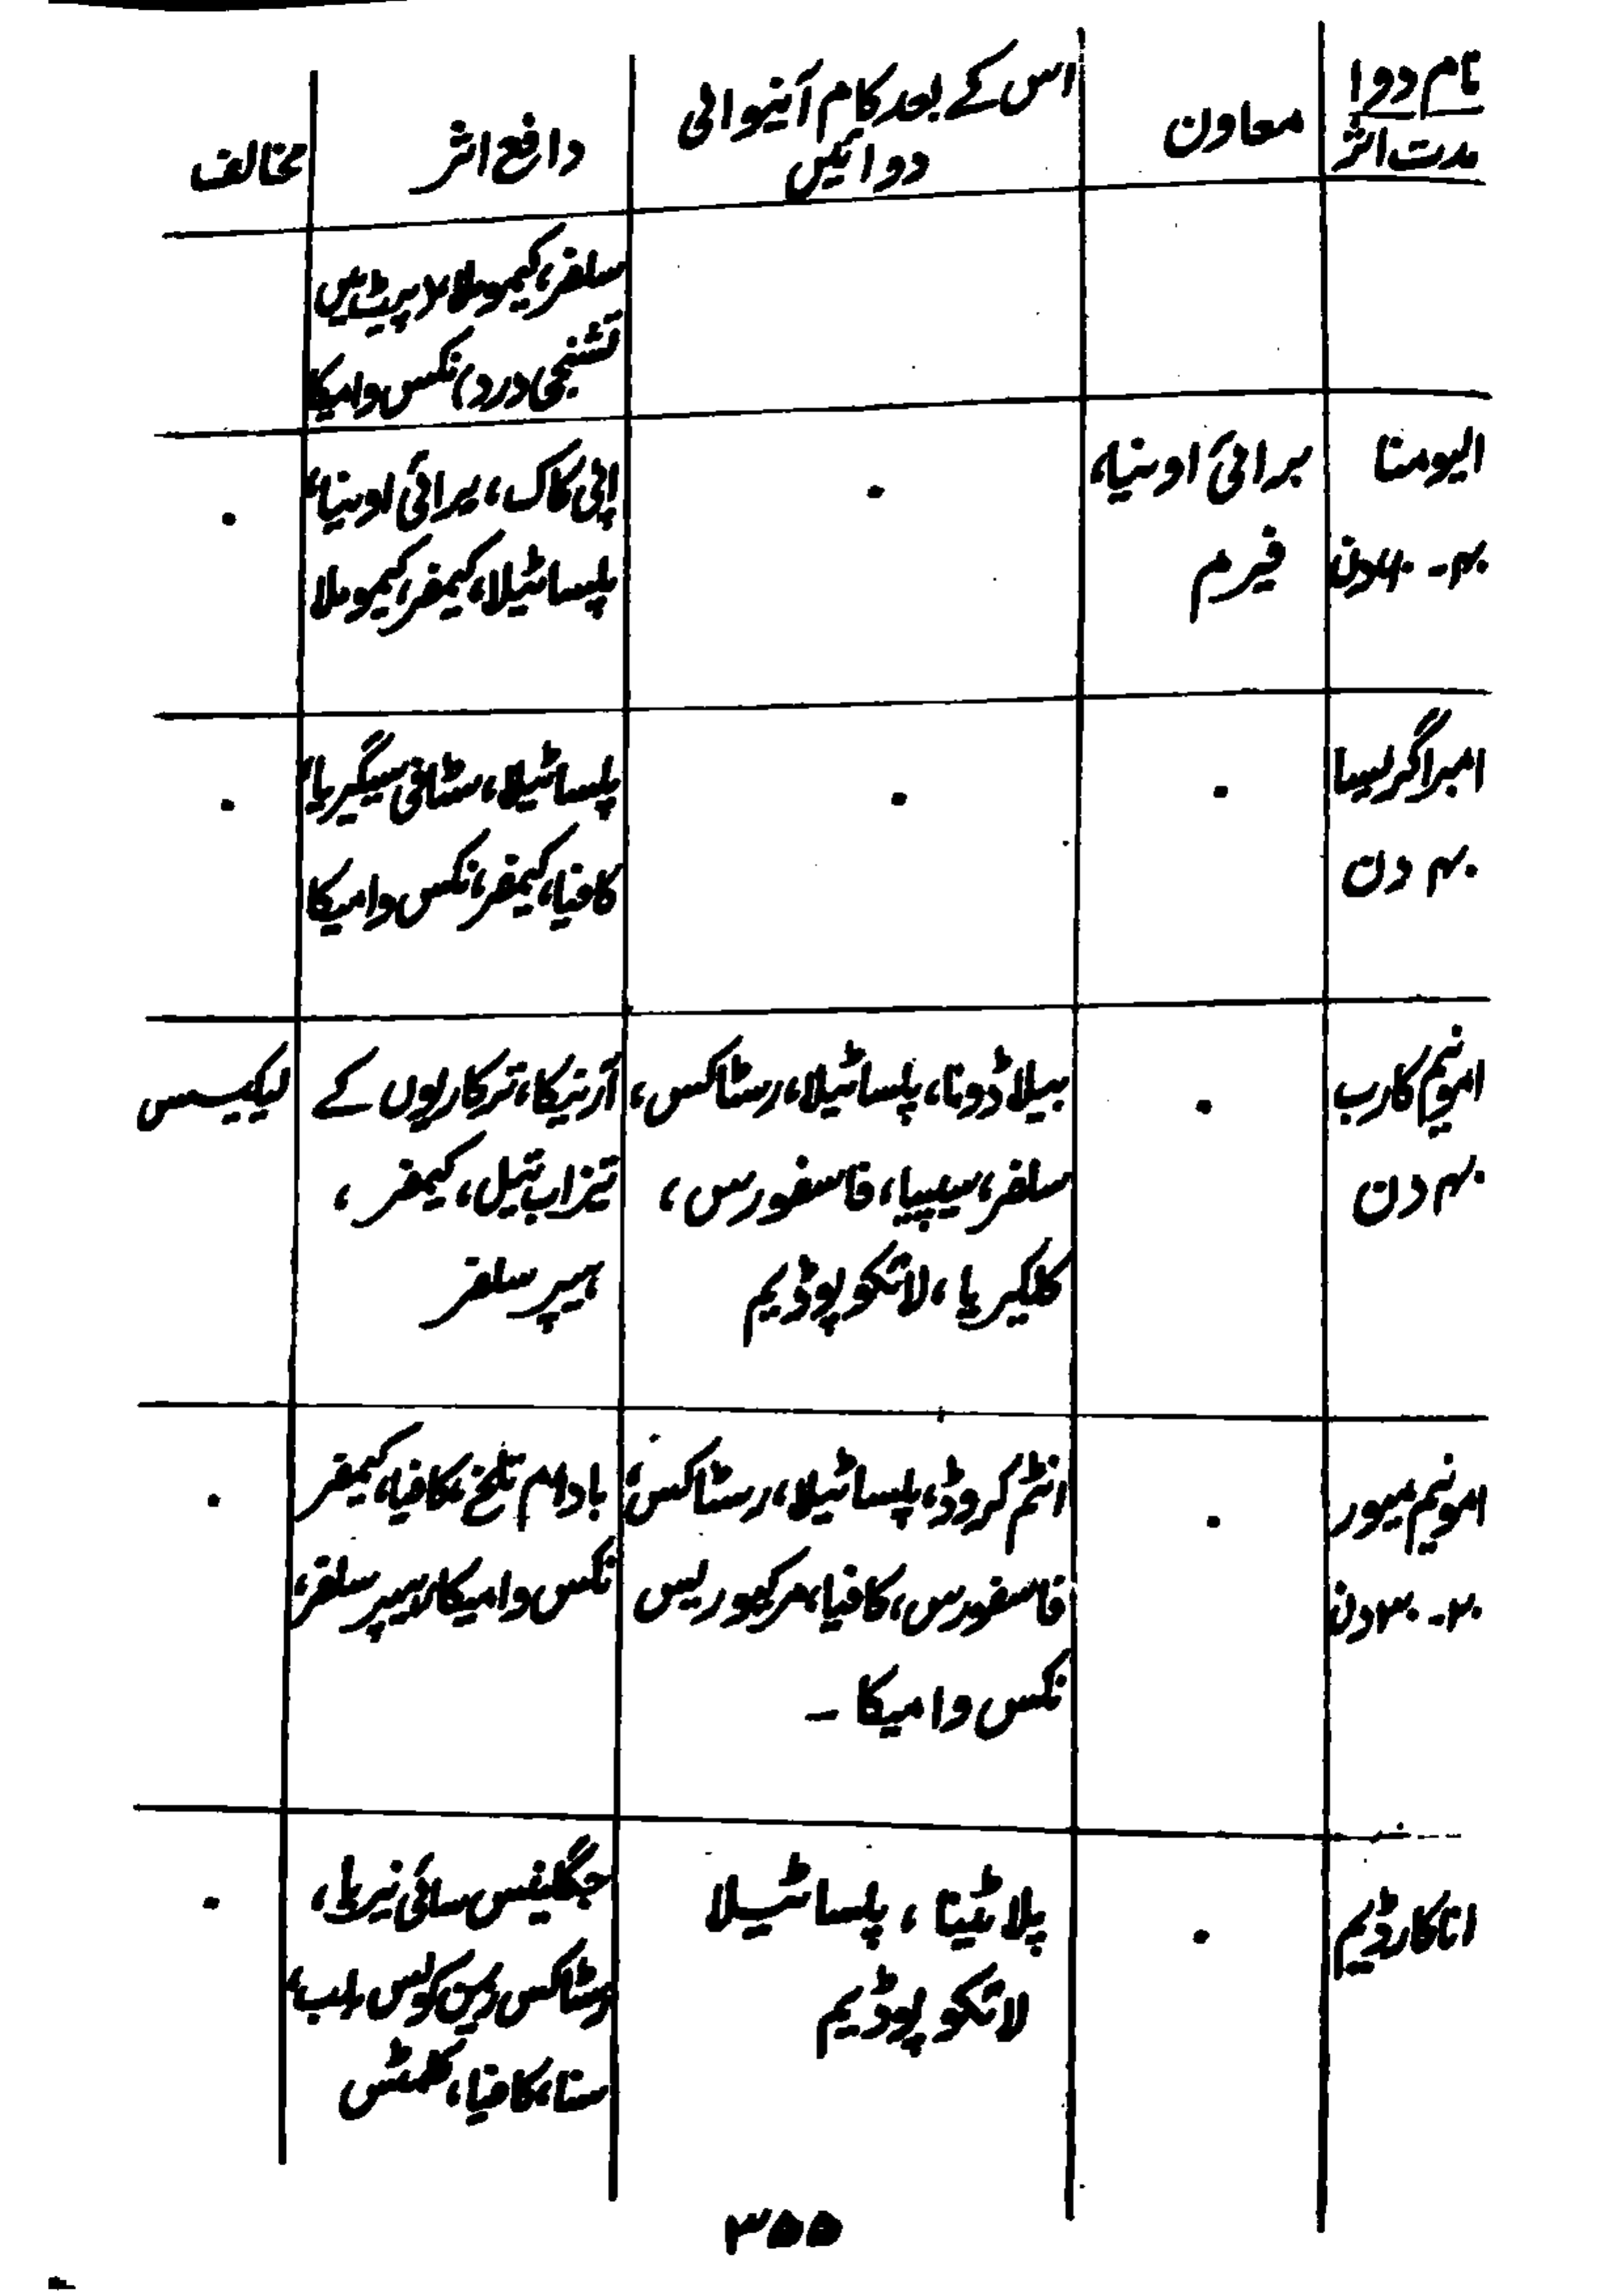 نام دوا
مدت اثر
معاون
اس کے بعد کام آنیوالی
دوائیں
دافع اثر
مخالف
سلفر، کیمو ملا (پیٹ میں
تشنجی درد) نکس وامیکا
الیومنا
۴۰۔۶۰ دن
برائی اونیا،
فیرم
۰
اپی کاک، برائی اونیا،
پلساٹیلا، کیمفر، کیمو ملا
۰
امبرا گریسا
۴۰ دن
۰
۰
پلساٹیلا، سٹافی سیگریا،
کافیا، کیمفر، نکس وامیکا
۰
امونیم کارب
۴۰ دن
۰
بیلا ڈونا، پلساٹیلا، رسٹاکس،
سلفر، سیپیا، فاسفورس،
کلکیریا، لائکو پوڈیم
آرنیکا، ترکاریوں کے
تیزاب تیل، کیمفر،
ہیپر سلفر
لیکیسس
امونیم میور
۲۰۔۳۰ دن
۰
انٹم کروڈ، پلساٹیلا، رسٹاکس،
فاسفورس، کافیا، مرکیوریس
نکس وامیکا ۔
بادام تلخ، کافیا، کیمفر
نکس وامیکا، ہیپر سلفر،
۰
اناکارڈیم
۰
پلاٹینا، پلساٹیلا
لائکو پوڈیم
جگلینس سائی نیریا،
رسٹاکس
کافیا، کلمٹس
۰
۳۵۵